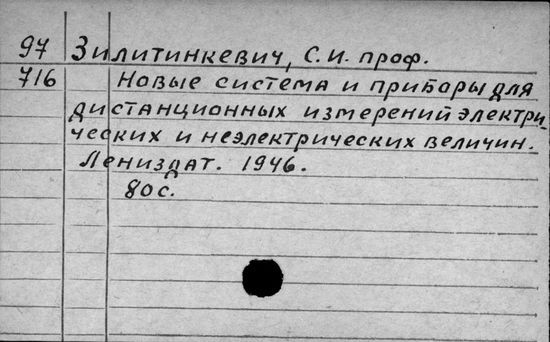 97 Зилитинкевич, С.И. проф.
716 Новые система и приборы для
дистанционных измерений электри-
ческих и неэлектрических величин.
Лениздат. 1946.
80 с.